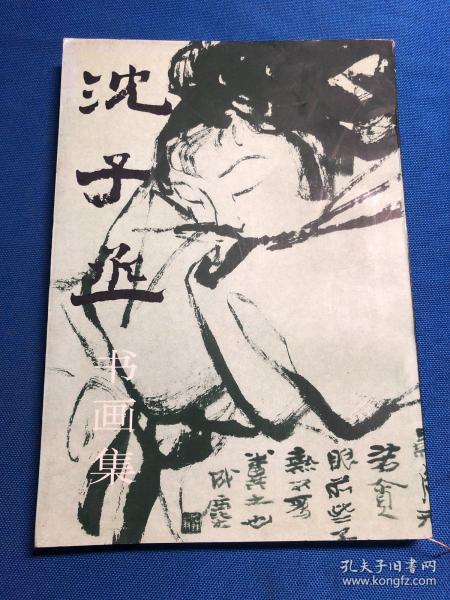 沈子丞
书画集
若貪
眼前些子
孔夫子旧书网
www.kongfz.com